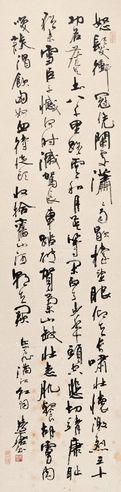 怒髮衝冠憑闌處瀟瀟雨歇擡望眼仰天長嘯壯懷激烈三十
功名塵與土八千里路雲和月莫等閒白了少年頭空悲切靖康恥
猶未雪臣子憾何時滅駕長車踏破賀蘭山缺壯志飢餐胡虜肉
笑談渴飲匈奴血待從頭收拾舊山河朝天闕 岳飛滿江紅詞